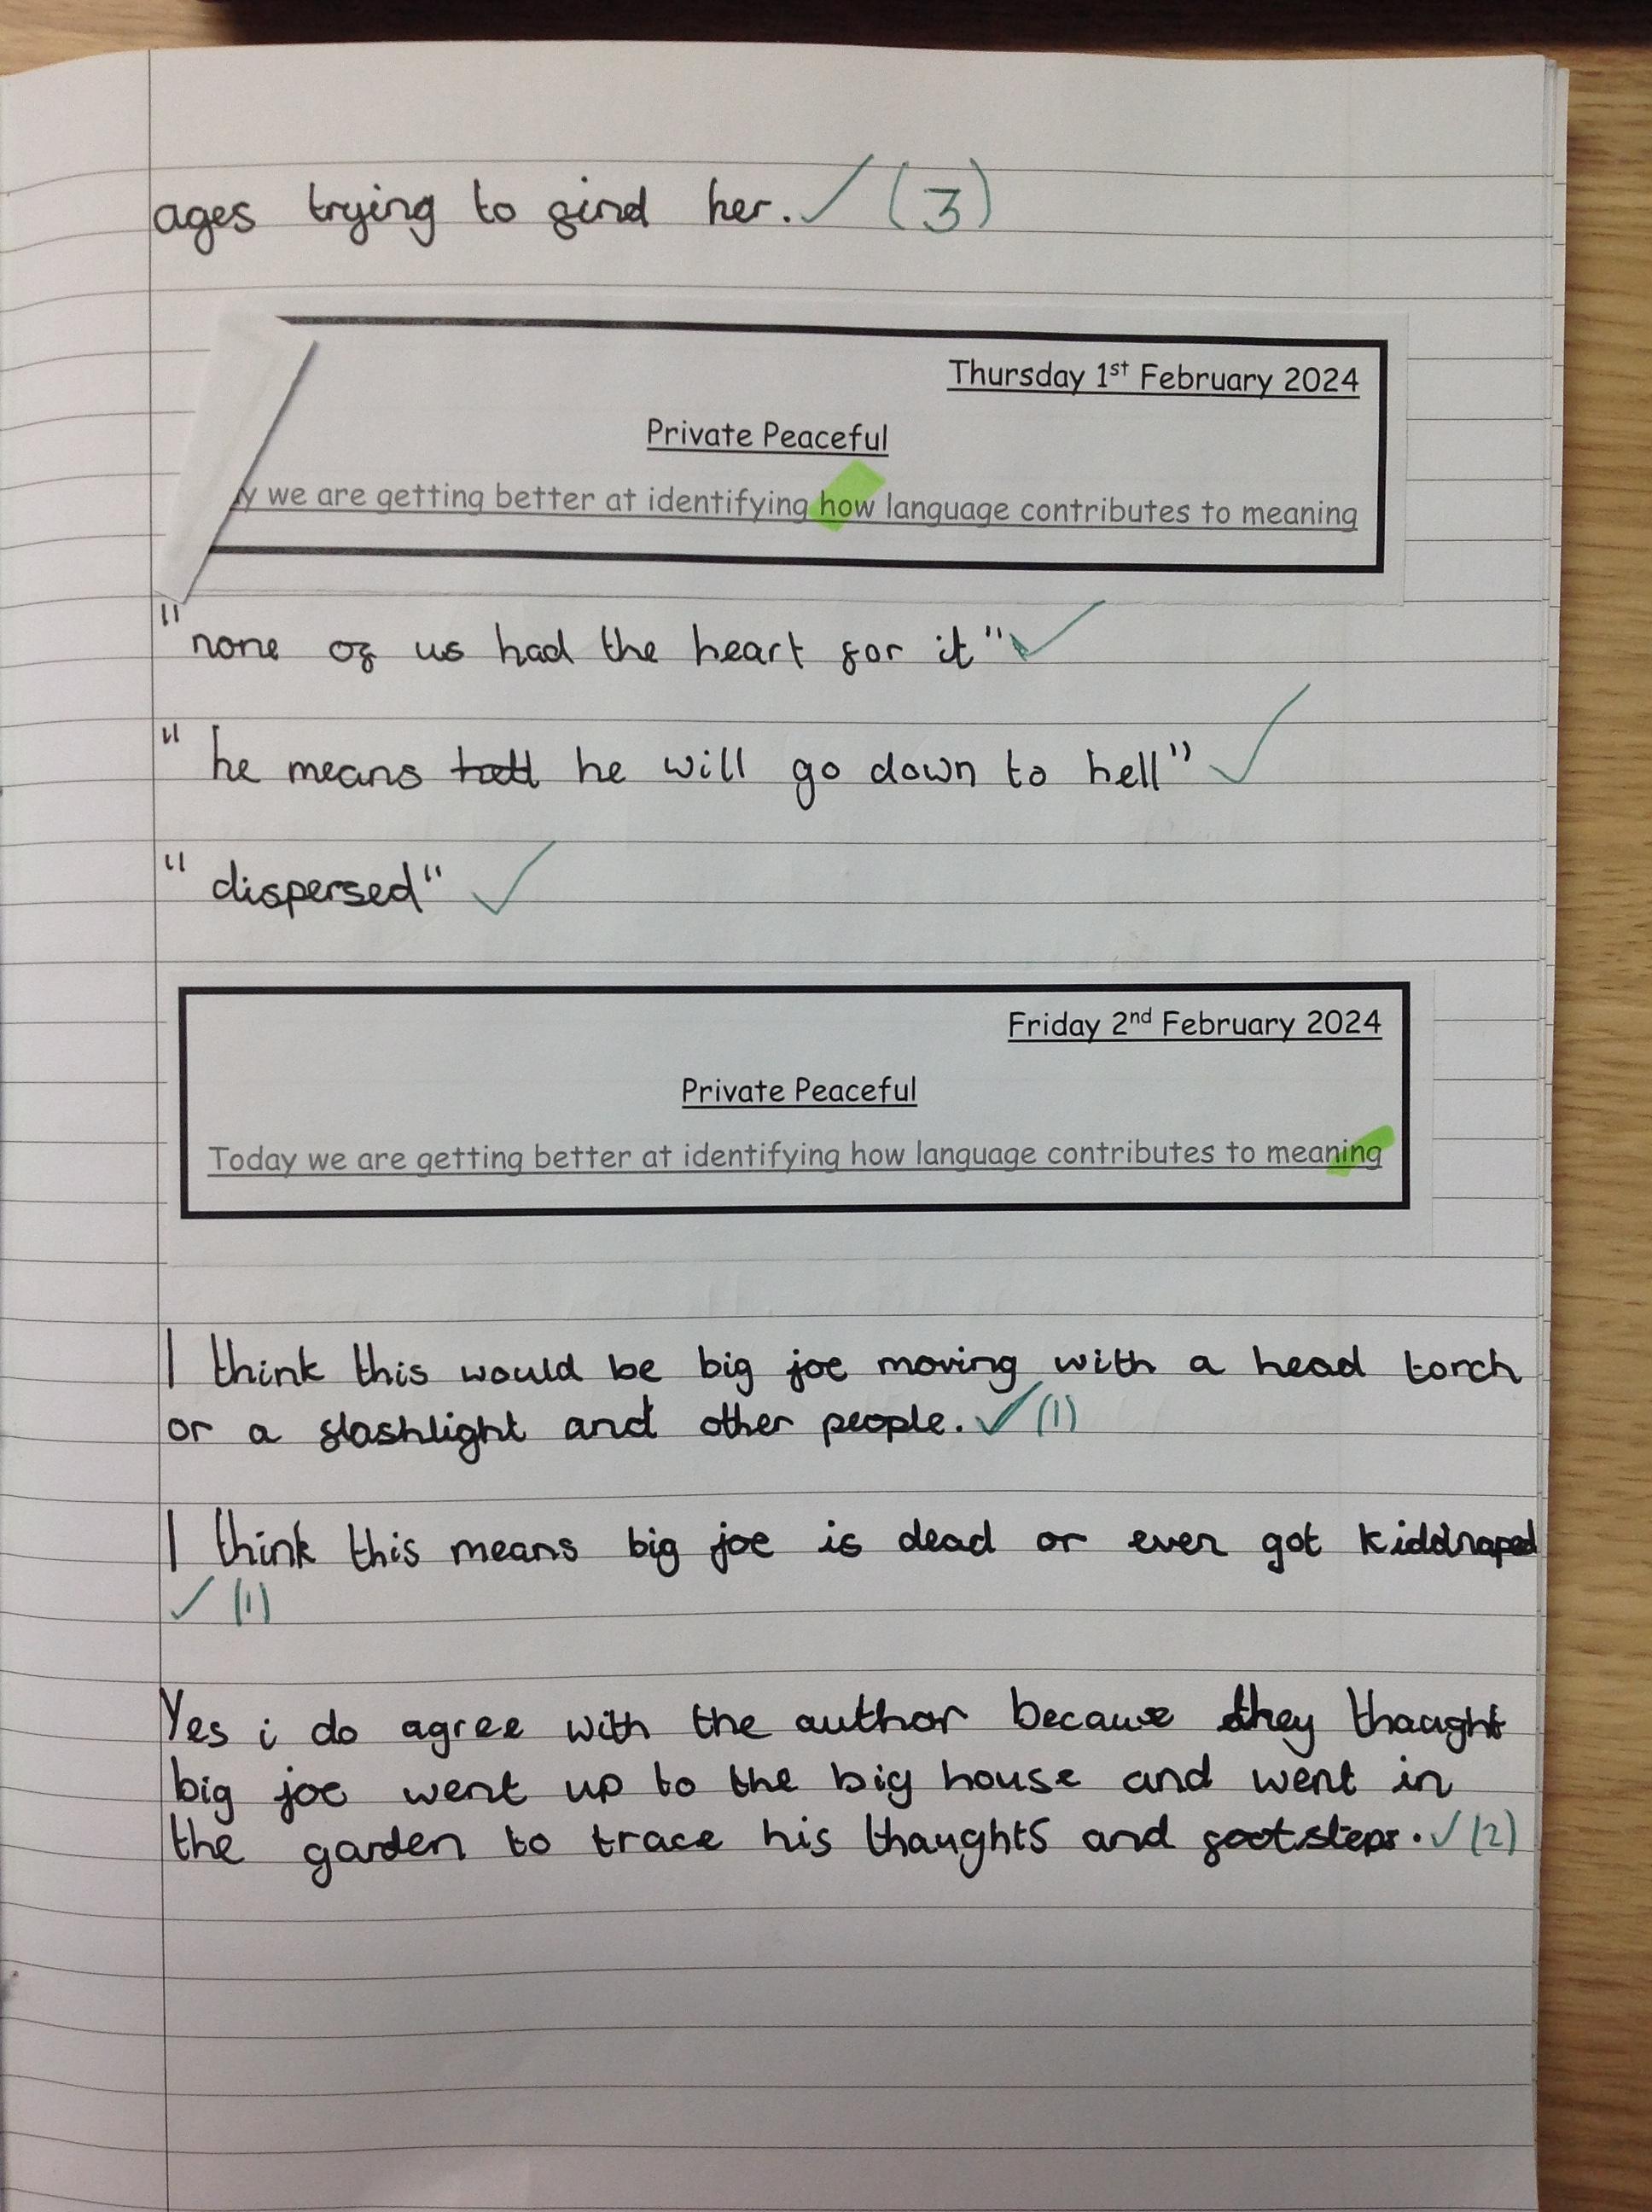 ages trying to find her. ✓ (3)
Thursday 1st February 2024
Private Peaceful
y we are getting better at identifying how language contributes to meaning
"none of us had the heart for it" ✓
"he means he will go down to hell" ✓
"dispersed" ✓
Friday 2nd February 2024
Private Peaceful
Today we are getting better at identifying how language contributes to meaning
I think this would be big joe moving with a head torch
or a flashlight and other people. ✓ (1)
I think this means big joe is dead or even got kiddnaped
✓ (1)
Yes i do agree with the author because they thaught
big joe went up to the big house and went in
the garden to trace his thaughts and footsteps. ✓ (2)